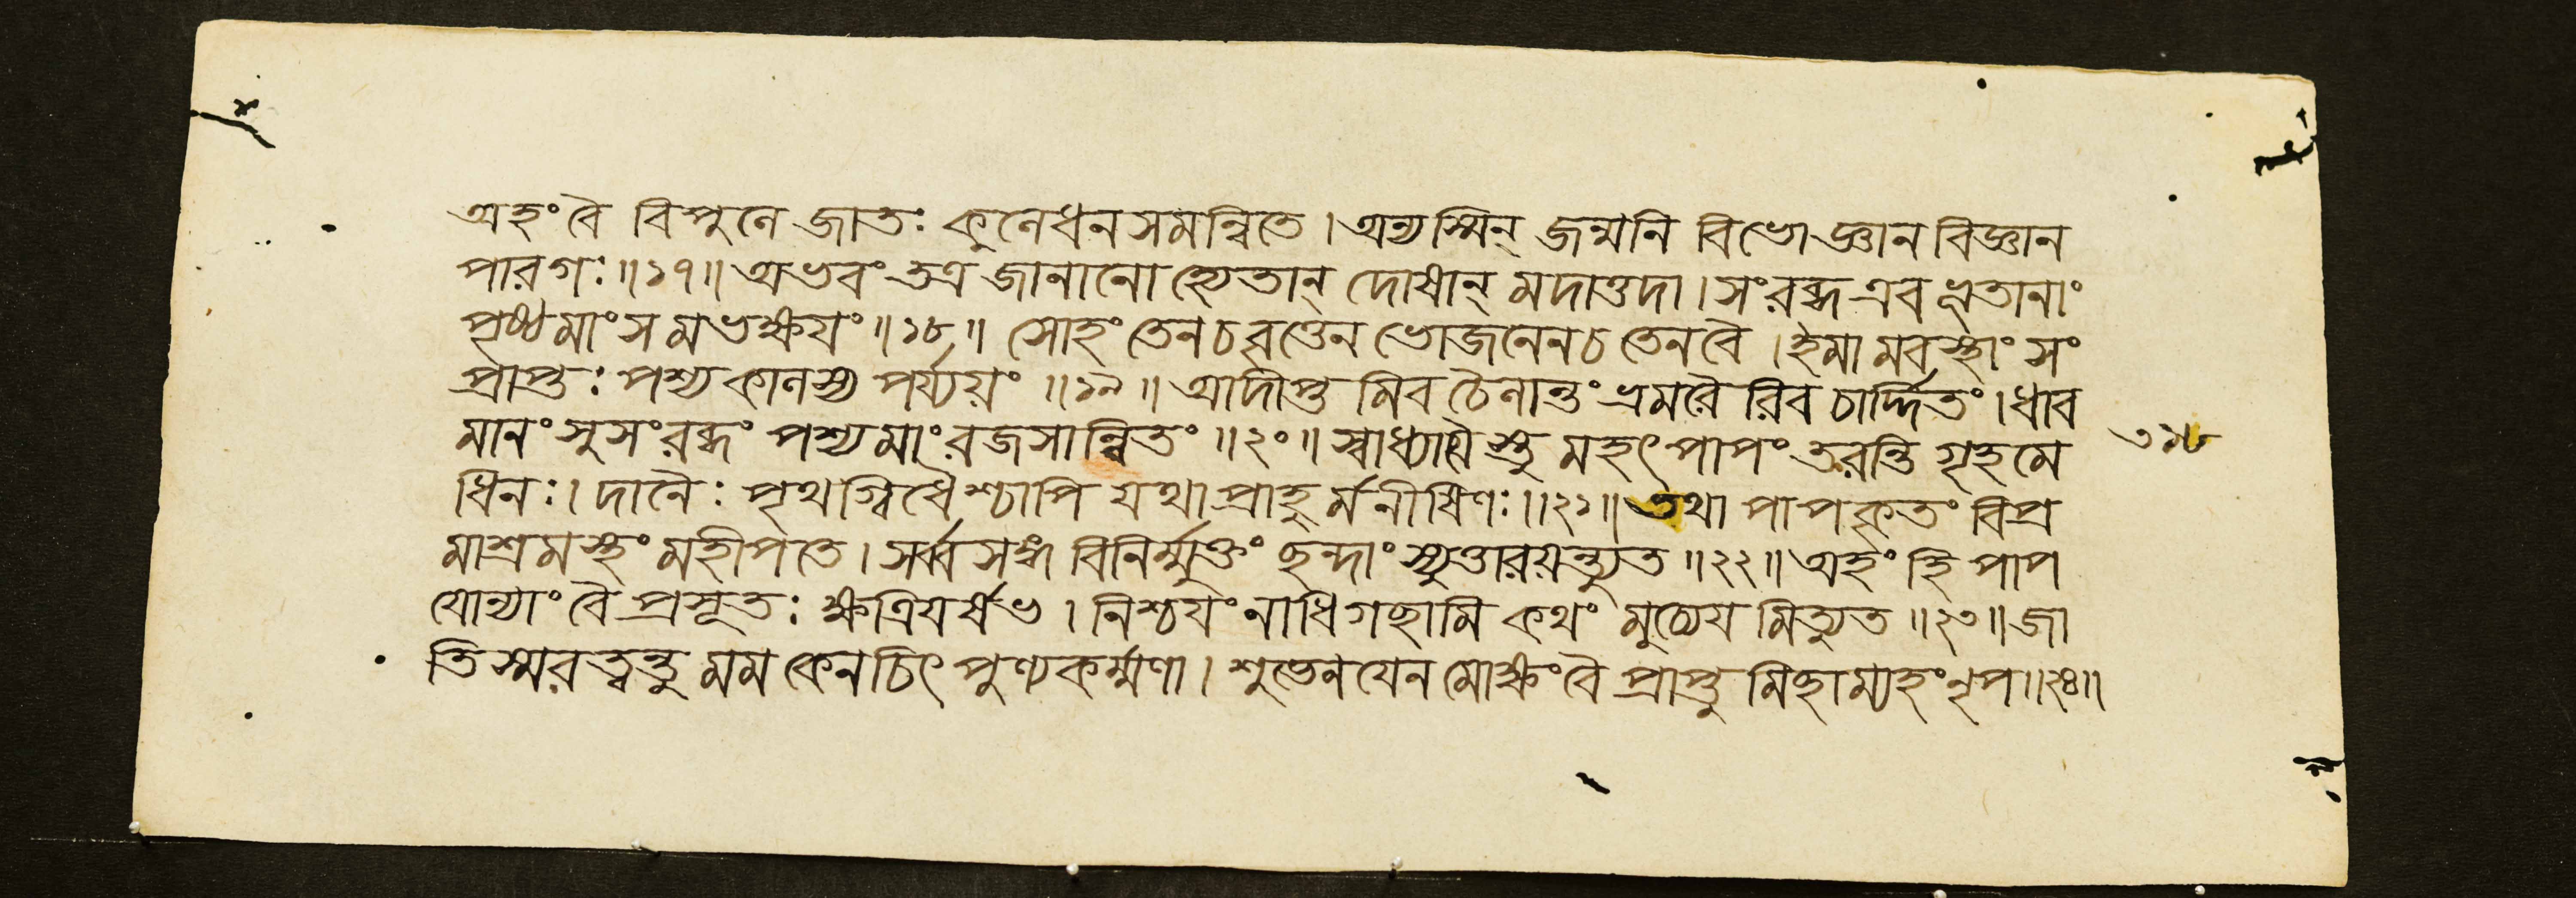 অহং বৈ বিপুলে জাতঃ কুলেধনসমন্বিতে । অন্যস্মিন্ জন্মনি বিভো জ্ঞানবিজ্ঞান
পারগঃ ॥ ১৭ ॥ অভবং তত্র জানানো হ্যেতান্ দোষান্ মদাত্তদা । সংরব্ধ এব ভূতানাং
পৃষ্ঠমাংসমভক্ষয়ং ॥ ১৮ ॥ সোহং তেন চ বৃত্তেন ভোজনেন চ তেন বৈ । ইমামবস্থাং সং
প্রাপ্তঃ পশ্য কালস্য পর্য্যয়ং ॥ ১৯ ॥ আদীপ্তমিব চৈলান্তং ভ্রমরৈরিব চার্দ্দিতং । ধাব
মানং সুসংরব্ধং পশ্য মাং রজসান্বিতং ॥ ২০ ॥ স্বাধ্যায়ৈস্তু মহৎ পাপং তরন্তি গৃহমে
ধিনঃ । দানৈঃ পৃথগ্বিধৈশ্চাপি যথা প্রাহুর্মনীষিণঃ ॥ ২১ ॥ তথা পাপকৃতং বিপ্র
মাশ্রমস্থং মহীপতে । সর্ব্বসঙ্গবিনির্ম্মুক্তং ছন্দাংস্যুত্তারয়ন্ত্যুত ॥ ২২ ॥ অহং হি পাপ
যোন্যাং বৈ প্রসূতঃ ক্ষত্রিয়র্ষভ । নিশ্চয়ং নাধিগছামি কথং মুচ্যেয়মিত্যুত ॥ ২৩ ॥ জা
তিস্মরত্বন্তু মম কেনচিৎ পুণ্যকর্ম্মণা । শুভেন যেন মোক্ষং বৈ প্রাপ্তুমিছাম্যহং নৃপ ॥ ২৪ ॥